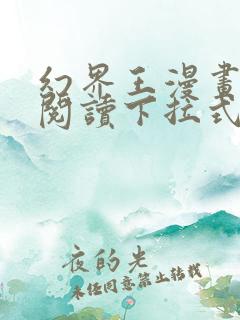 幻界王漫畫
閱讀下拉式
夜的光
未经同意禁止转载